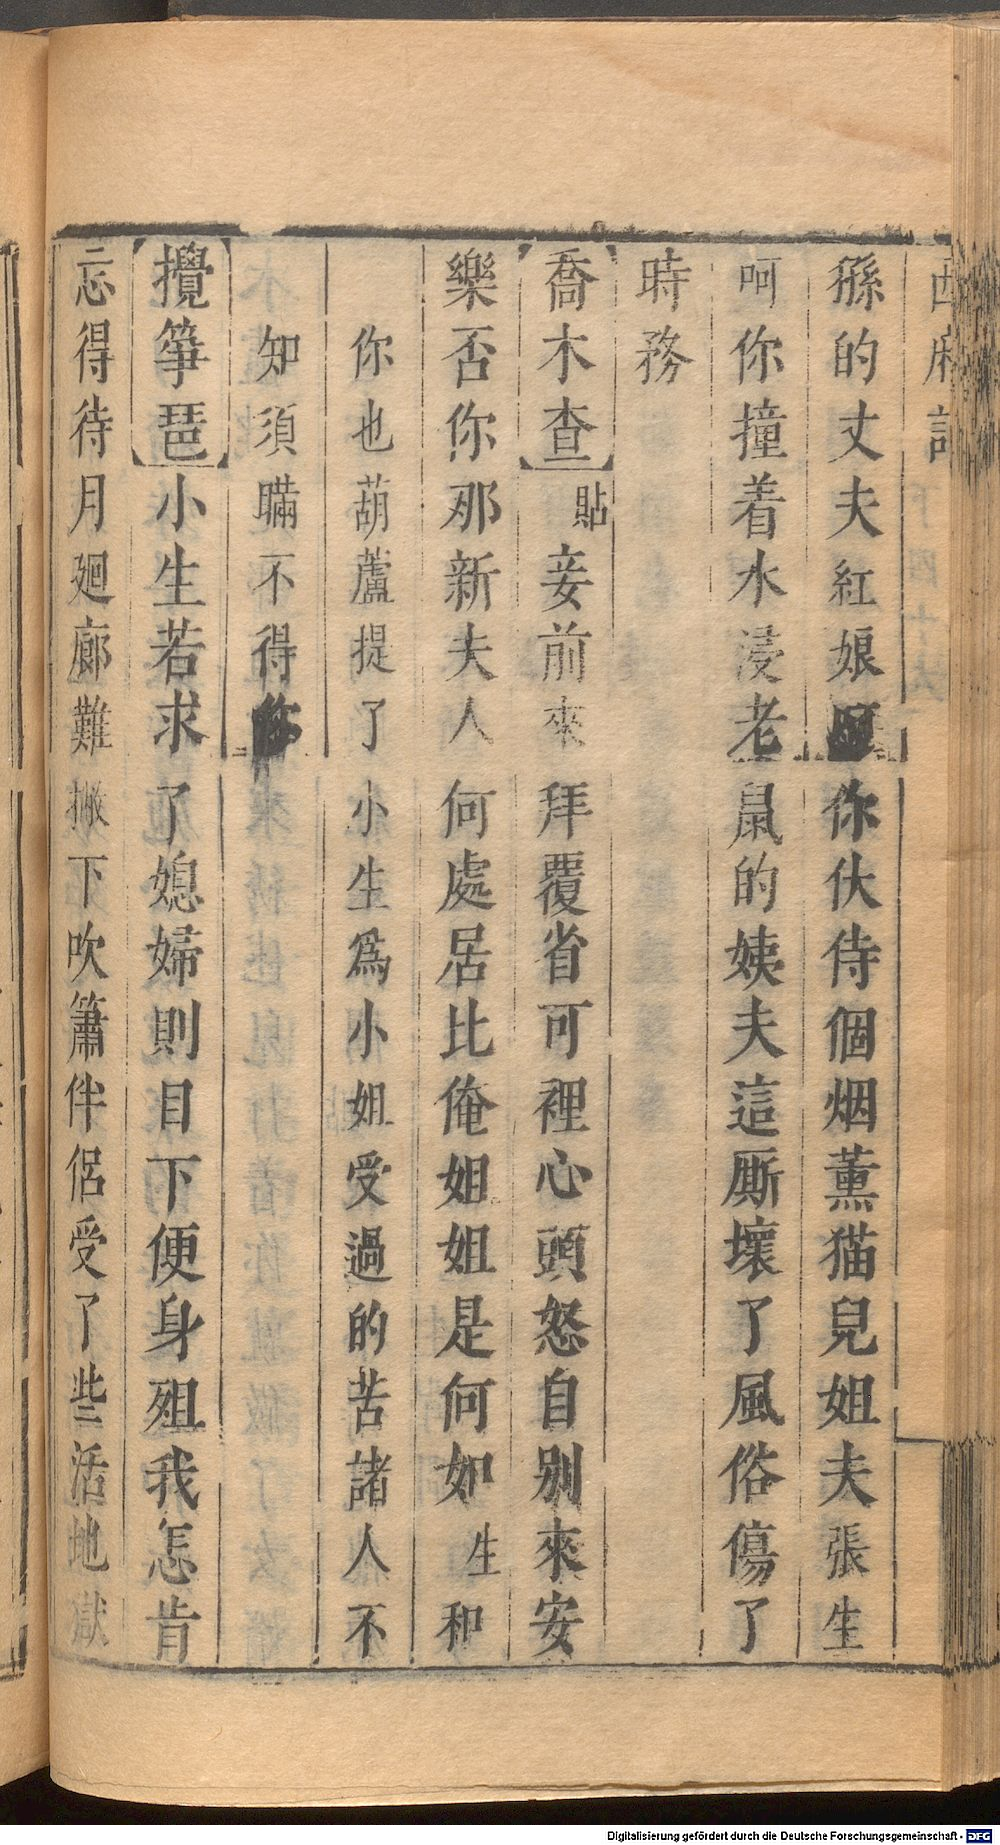 西廂記
猻的丈夫紅娘你伏侍個烟薰猫兒姐夫張生
呵你撞着水浸老鼠的姨夫這厮壞了風俗傷了
時務
【喬木查】貼妾前來拜覆省可裡心頭怒自別來安
樂否你那新夫人何處居比俺姐姐是何如生和
你也葫蘆提了小生爲小姐受過的苦諸人不
知須瞞不得你
【攪箏琶】小生若求了媳婦則目下便身殂我怎肯
忘得待月廻廊難撇下吹簫伴侶受了些活地獄
Digitalisierung gefördert durch die Deutsche Forschungsgemeinschaft - DFG